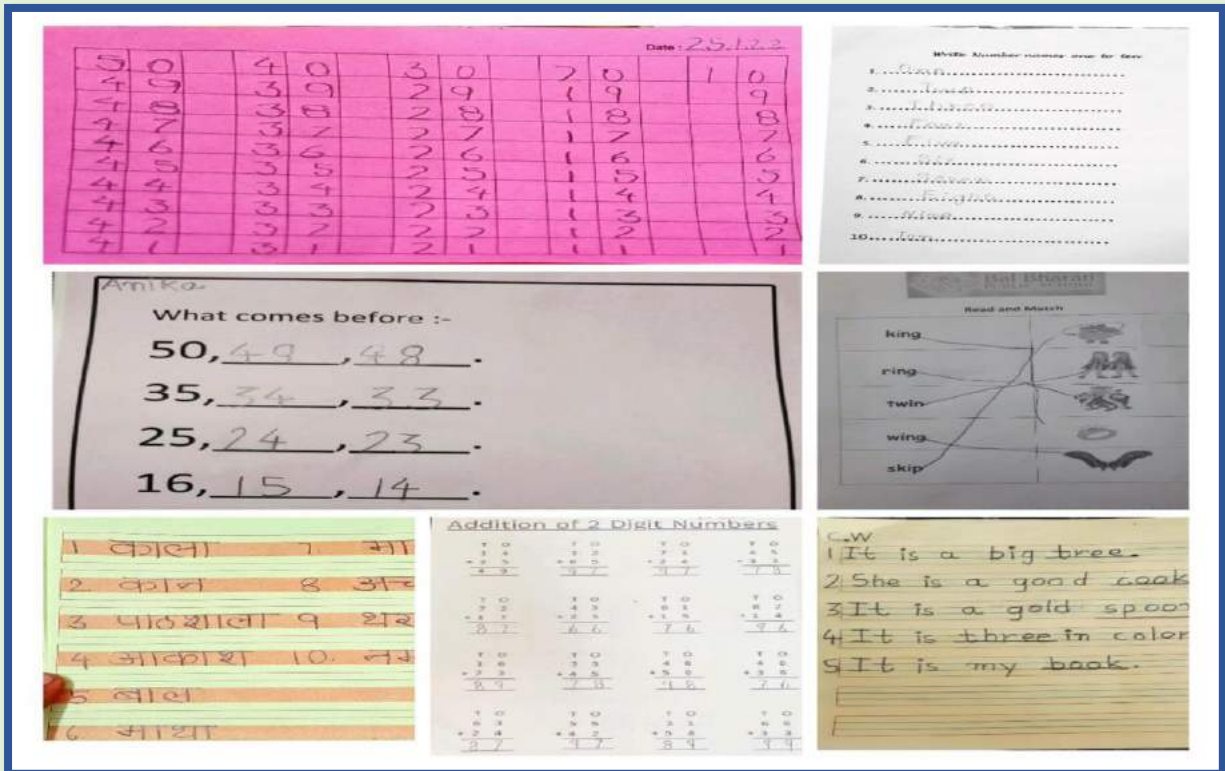 Date : 25.1.22
5 0 4 0 3 0 2 0 1 0
4 9 3 9 2 9 1 9 9
4 8 3 8 2 8 1 8 8
4 7 3 7 2 7 1 7 7
4 6 3 6 2 6 1 6 6
4 5 3 5 2 5 1 5 5
4 4 3 4 2 4 1 4 4
4 3 3 3 2 3 1 3 3
4 2 3 2 2 2 1 2 2
4 1 3 1 2 1 1 1 1
Write Number names one to ten
1. One
2.
3. Three
4. Four
5. Five
6. Six
7. Seven
8.
9. Nine
10. Ten
Anika
What comes before :-
50, 49, 48.
35, 34, 33.
25, 24, 23.
16, 15, 14.
Bal Bharati
PUBLIC SCHOOL
Read and Match
king
ring
twin
wing
skip
1 काला 7 मा
2 कान 8
3 पाठशाला 9
4 आकाश 10.
5 बाल
6 माथा
Addition of 2 Digit Numbers
T O T O T O T O
T O T O T O T O
T O T O T O T O
T O T O T O T O
C.W
1 It is a big tree.
2 She is a good cook
3 It is a gold spoon
4 It is three in color
5 It is my book.